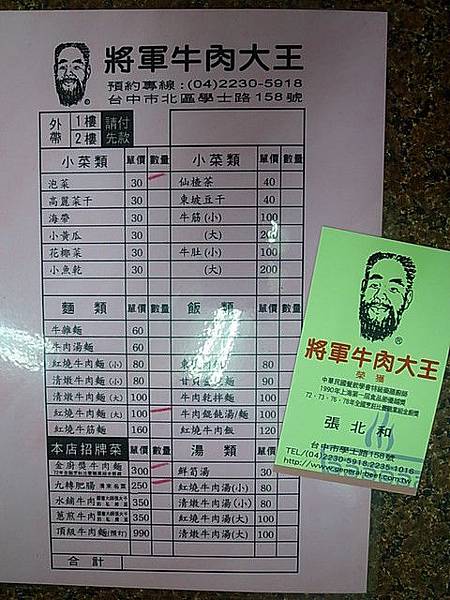 將軍牛肉大王
預約專線:(04)2230-5918
台中市北區學士路158號
外帶 1樓 2樓 請付先款
小菜類 單價 數量 小菜類 單價 數量
泡菜 30 仙楂茶 40
高麗菜干 30 東坡豆干 40
海帶 30 牛筋(小) 100
小黃瓜 30 (大) 200
花椰菜 30 牛肚(小) 100
小魚乾 30 (大) 200
麵類 單價 數量 飯類 單價
牛雜麵 60
牛肉湯麵 60
紅燒牛肉麵(小) 80
清燉牛肉麵(小) 80
清燉牛肉麵(大) 100 牛肉乾拌麵
紅燒牛肉麵(大) 100 牛肉餛飩湯/麵
紅燒牛筋麵 160 紅燒牛肉飯 120
本店招牌菜 單價 數量 湯類 單價 數量
金廚獎牛肉麵 300 鮮筍湯 30
九轉肥腸 250 紅燒牛肉湯(小) 80
水鋪牛肉 350 清燉牛肉湯(小) 80
蔥煎牛肉 350 紅燒牛肉湯(大) 100
頂級牛肉麵(預訂) 990 清燉牛肉湯(大) 100
合計
將軍牛肉大王
榮獲
中華民國餐飲學會特級藥膳廚師
1990年上海第一屆食品節優誠獎
張北和
台中市學士路158號
TEL/(04)2230-5918.2235-1016
http://www.general-beef.com.tw